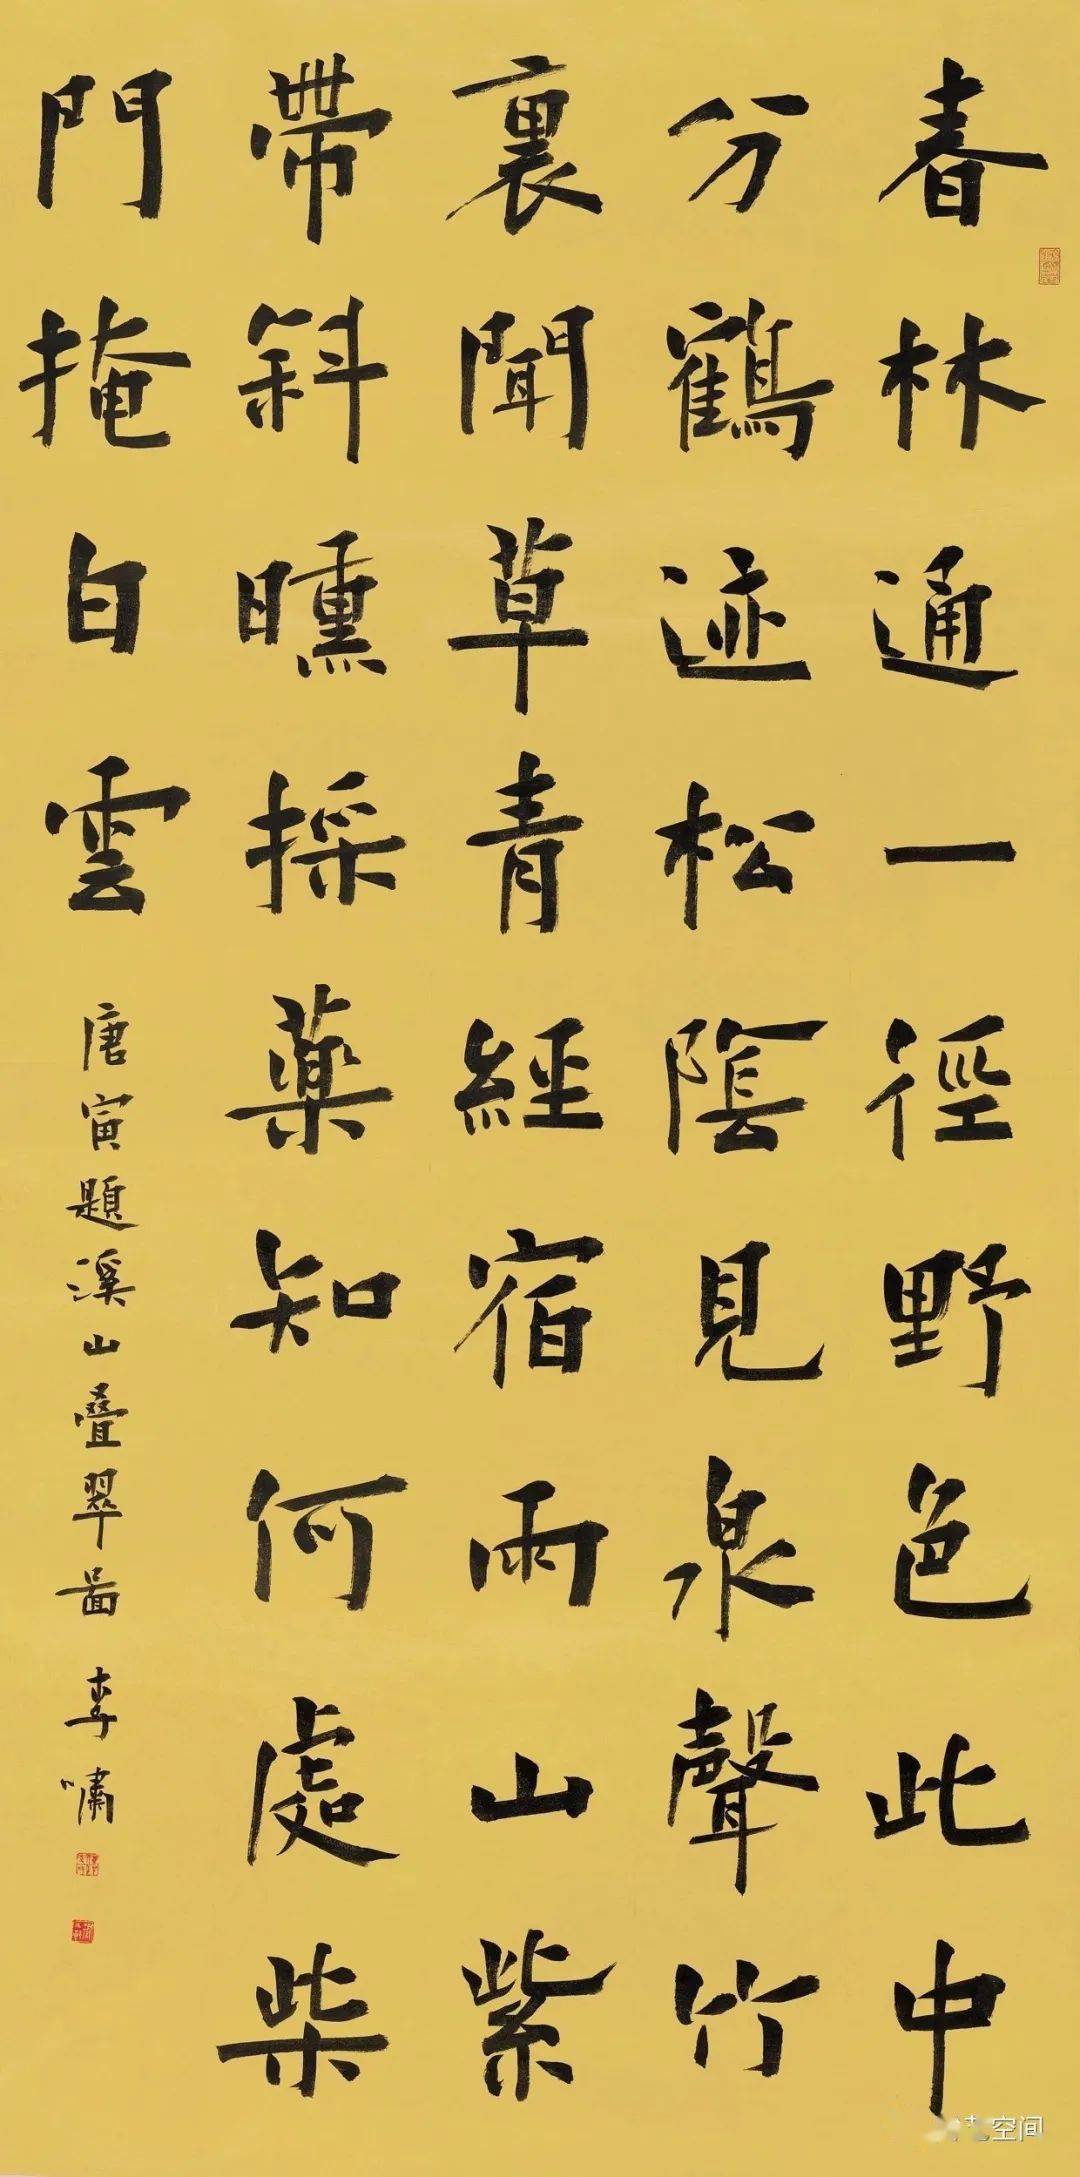 春林通一徑野色此中
分鶴迹松陰見泉聲竹
裏聞草青經宿雨山紫
帶斜曛採藥知何處柴
門掩白雲
唐寅題溪山疊翠啚
李嘯
空间